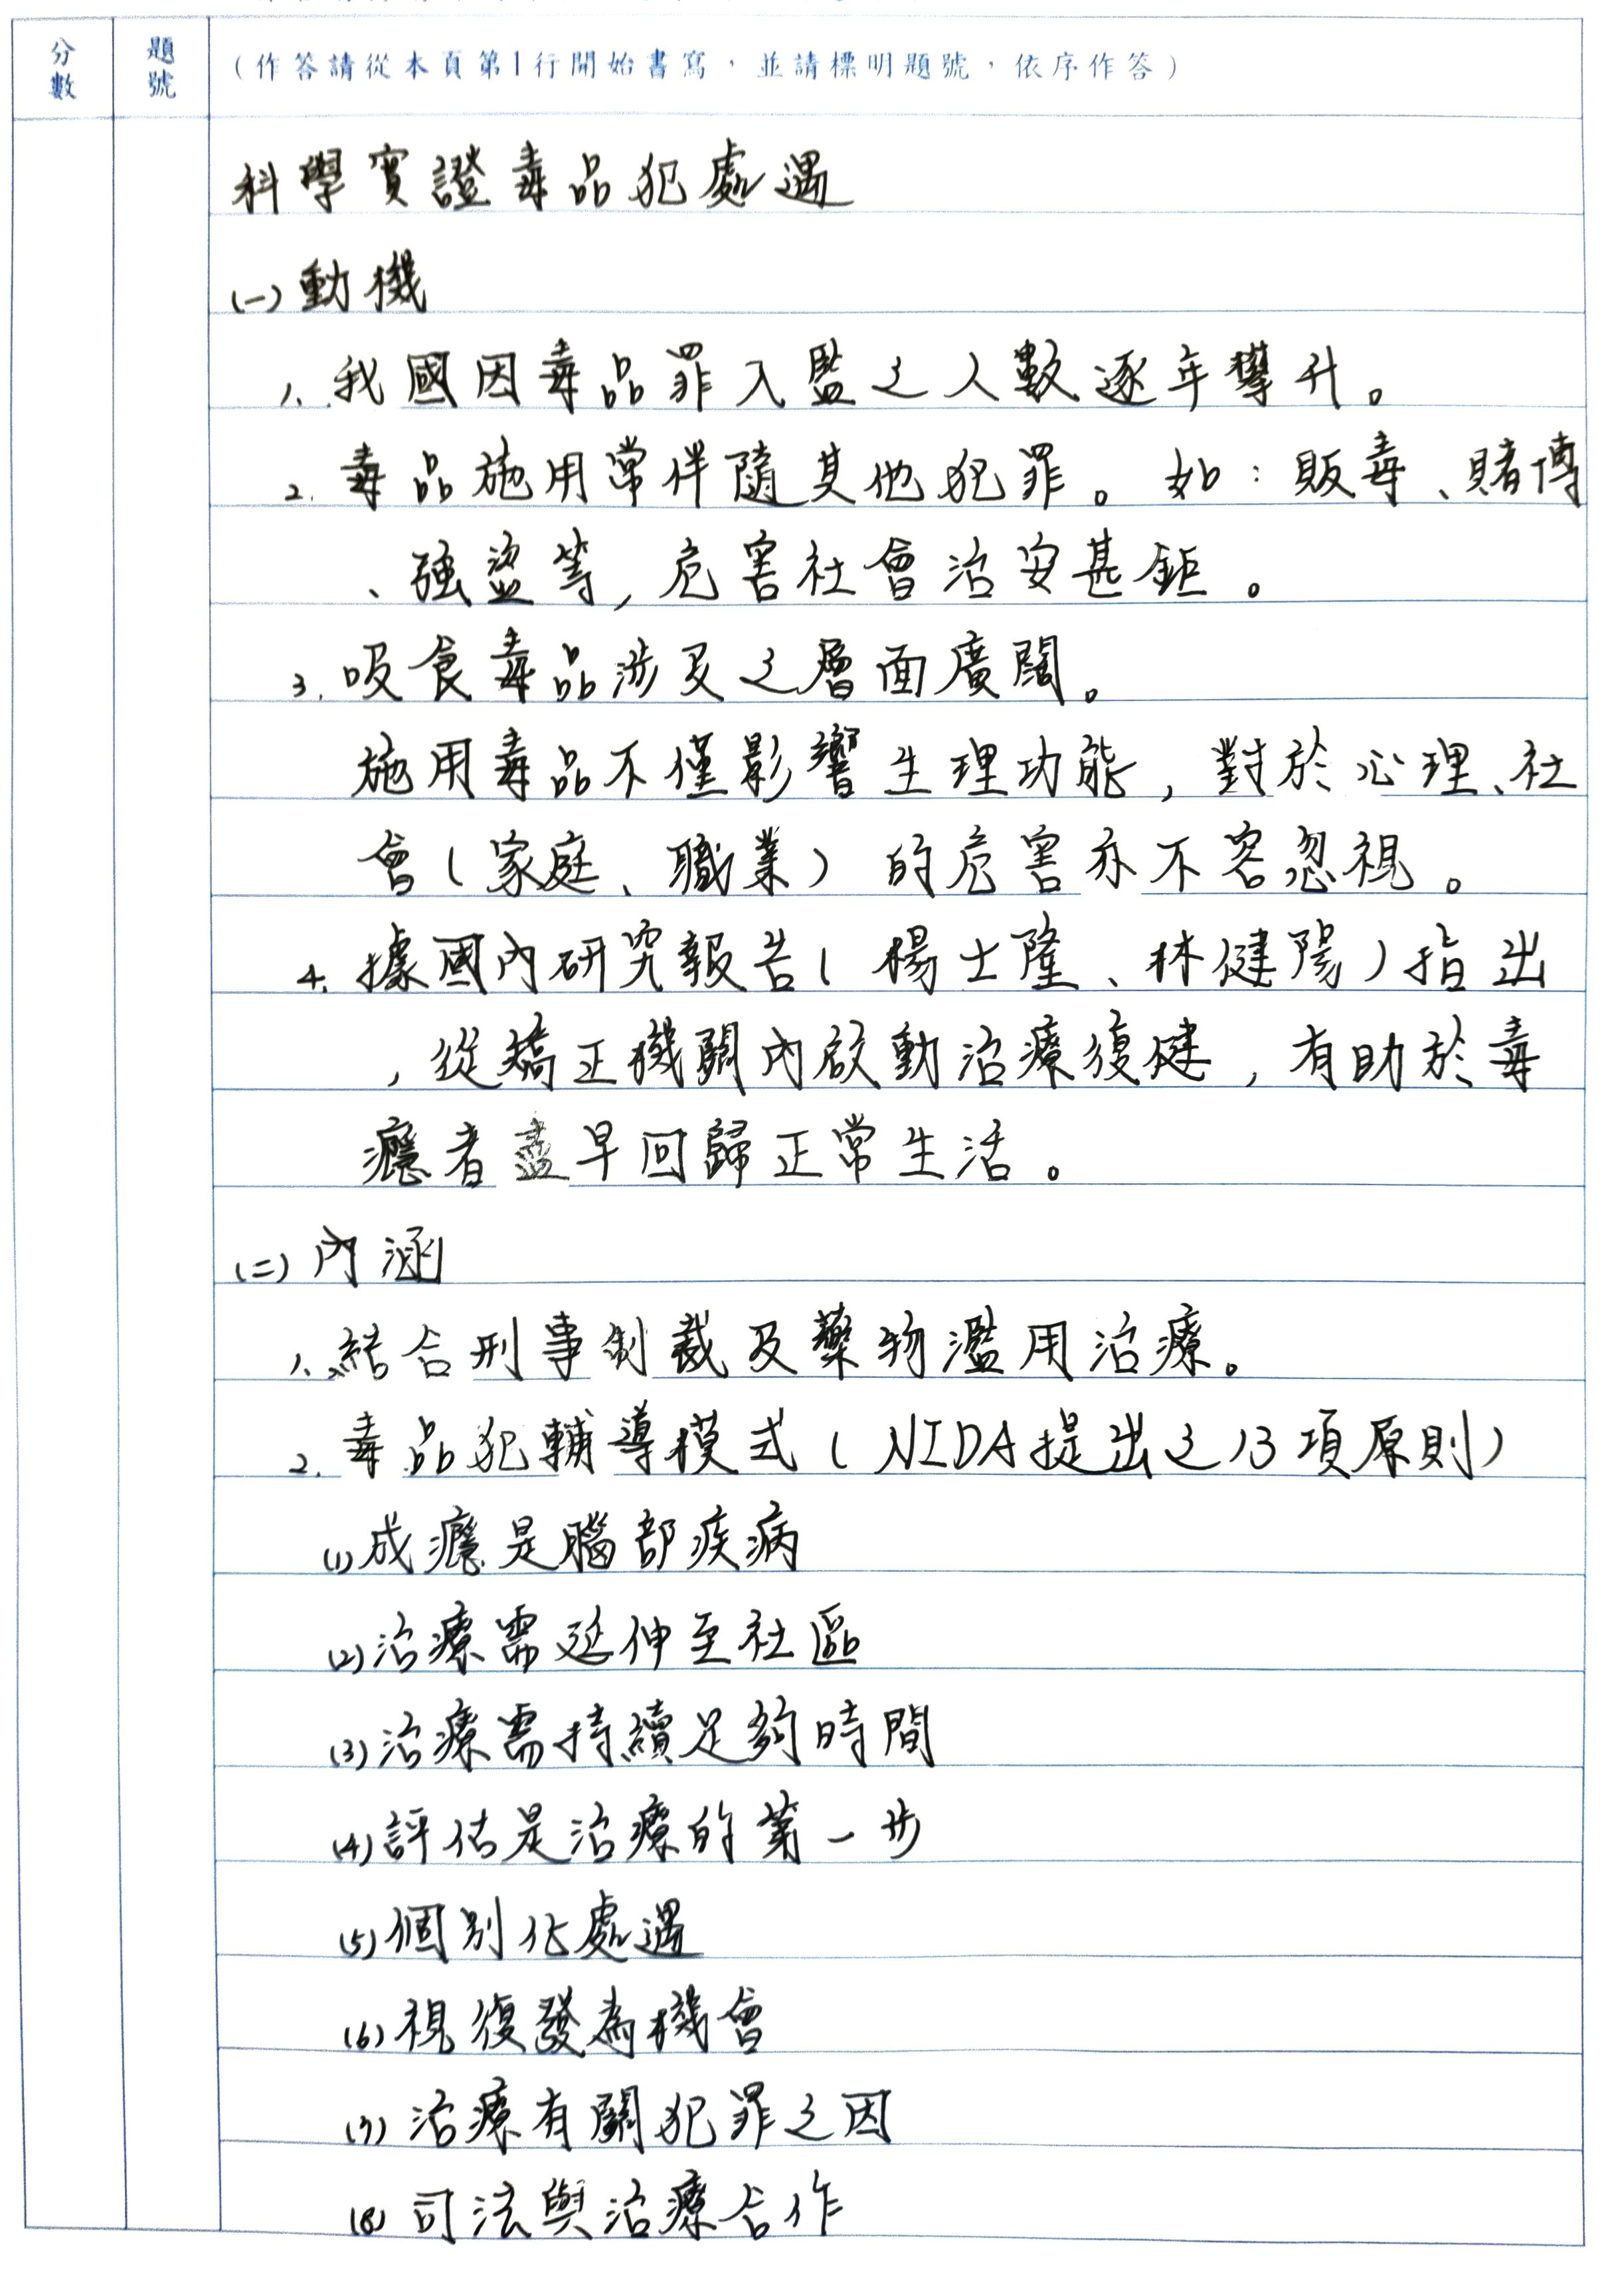 分數
題號
(作答請從本頁第1行開始書寫,並請標明題號,依序作答)
科學實證毒品犯處遇
(一)動機
1.我國因毒品罪入監之人數逐年攀升。
2.毒品施用常伴隨其他犯罪。如:販毒、賭博
、強盜等,危害社會治安甚鉅。
3.吸食毒品涉及之層面廣闊。
施用毒品不僅影響生理功能,對於心理、社
會(家庭、職業)的危害亦不容忽視。
4.據國內研究報告(楊士隆、林健陽)指出
,從矯正機關內啟動治療復健,有助於毒
癮者盡早回歸正常生活。
(二)內涵
1.結合刑事制裁及藥物濫用治療。
2.毒品犯輔導模式(NIDA提出之13項原則)
(1)成癮是腦部疾病
(2)治療需延伸至社區
(3)治療需持續足夠時間
(4)評估是治療的第一步
(5)個別化處遇
(6)視復發為機會
(7)治療有關犯罪之因
(8)司法與治療合作